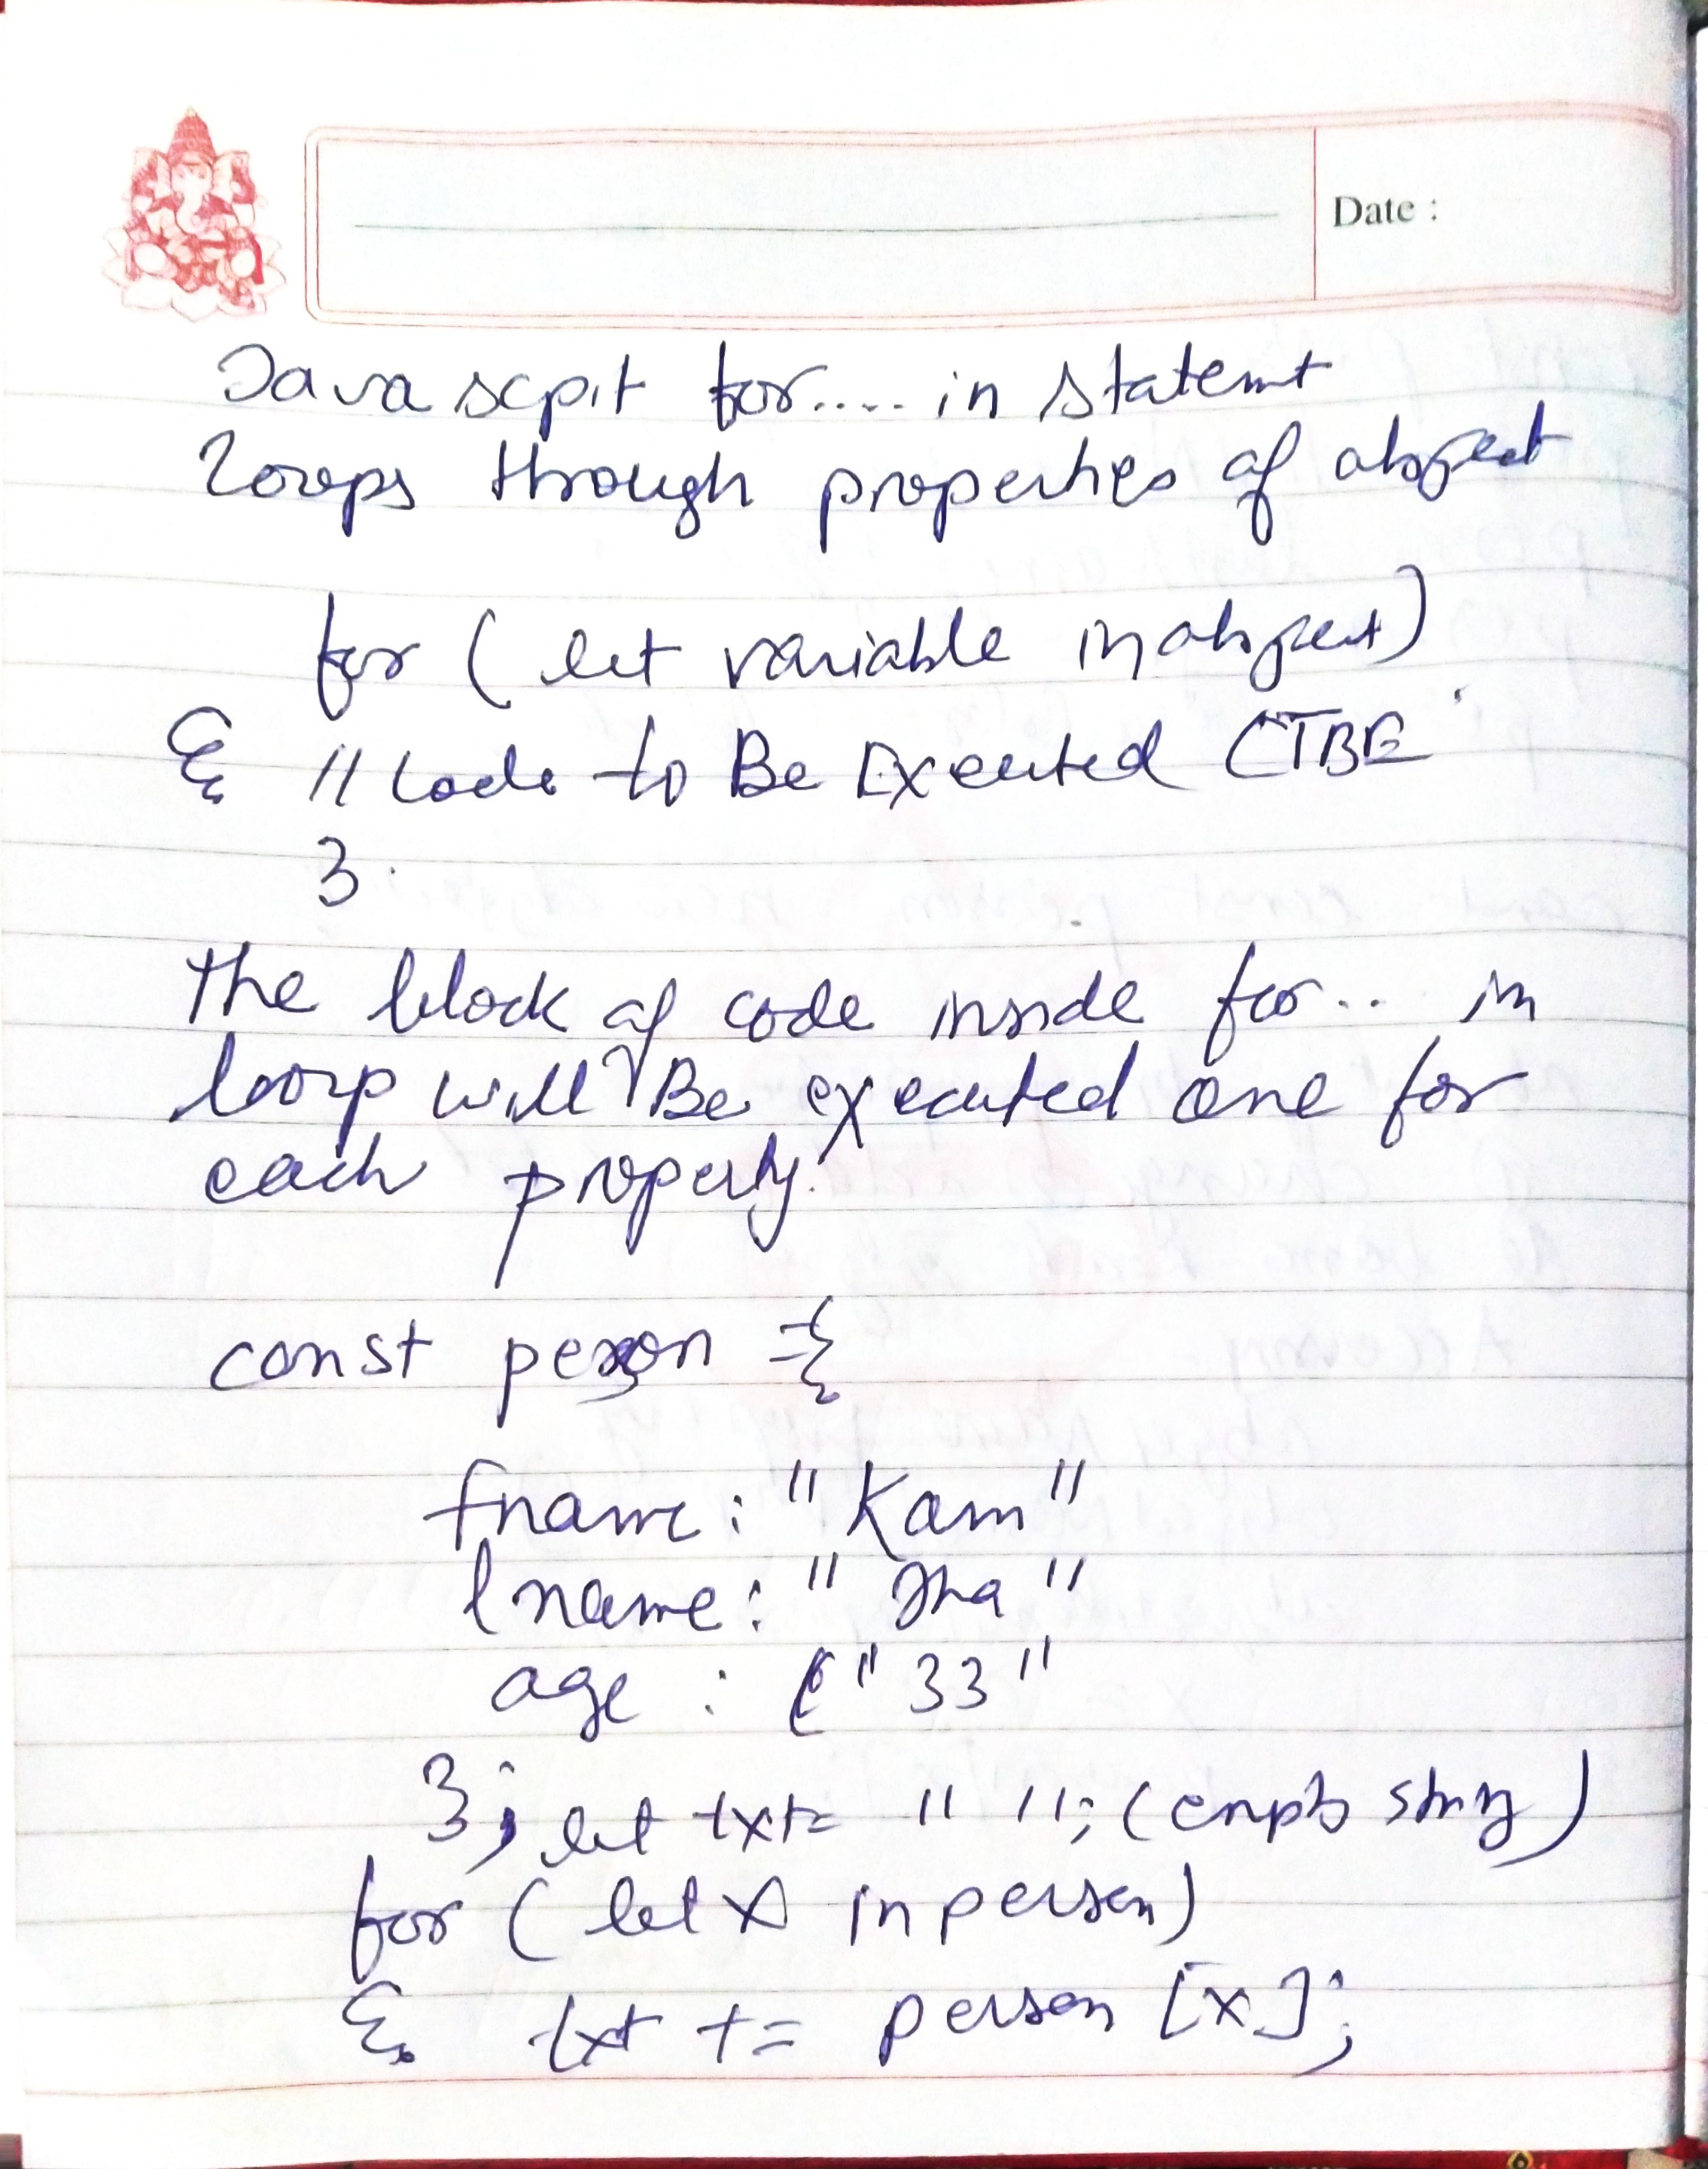 Date :
Java scpit for.... in statemt
Loops through properties of object
for ( let variable in object)
{ // Code to Be Executed CTBE
}
the block of code inside for.. in
loop will Be executed one for
each property.
const person ={
fname: "Kam"
lname: "Jha"
age : "33"
}; let txt= " "; (empty string)
for ( let x in person)
{ txt += person [x];